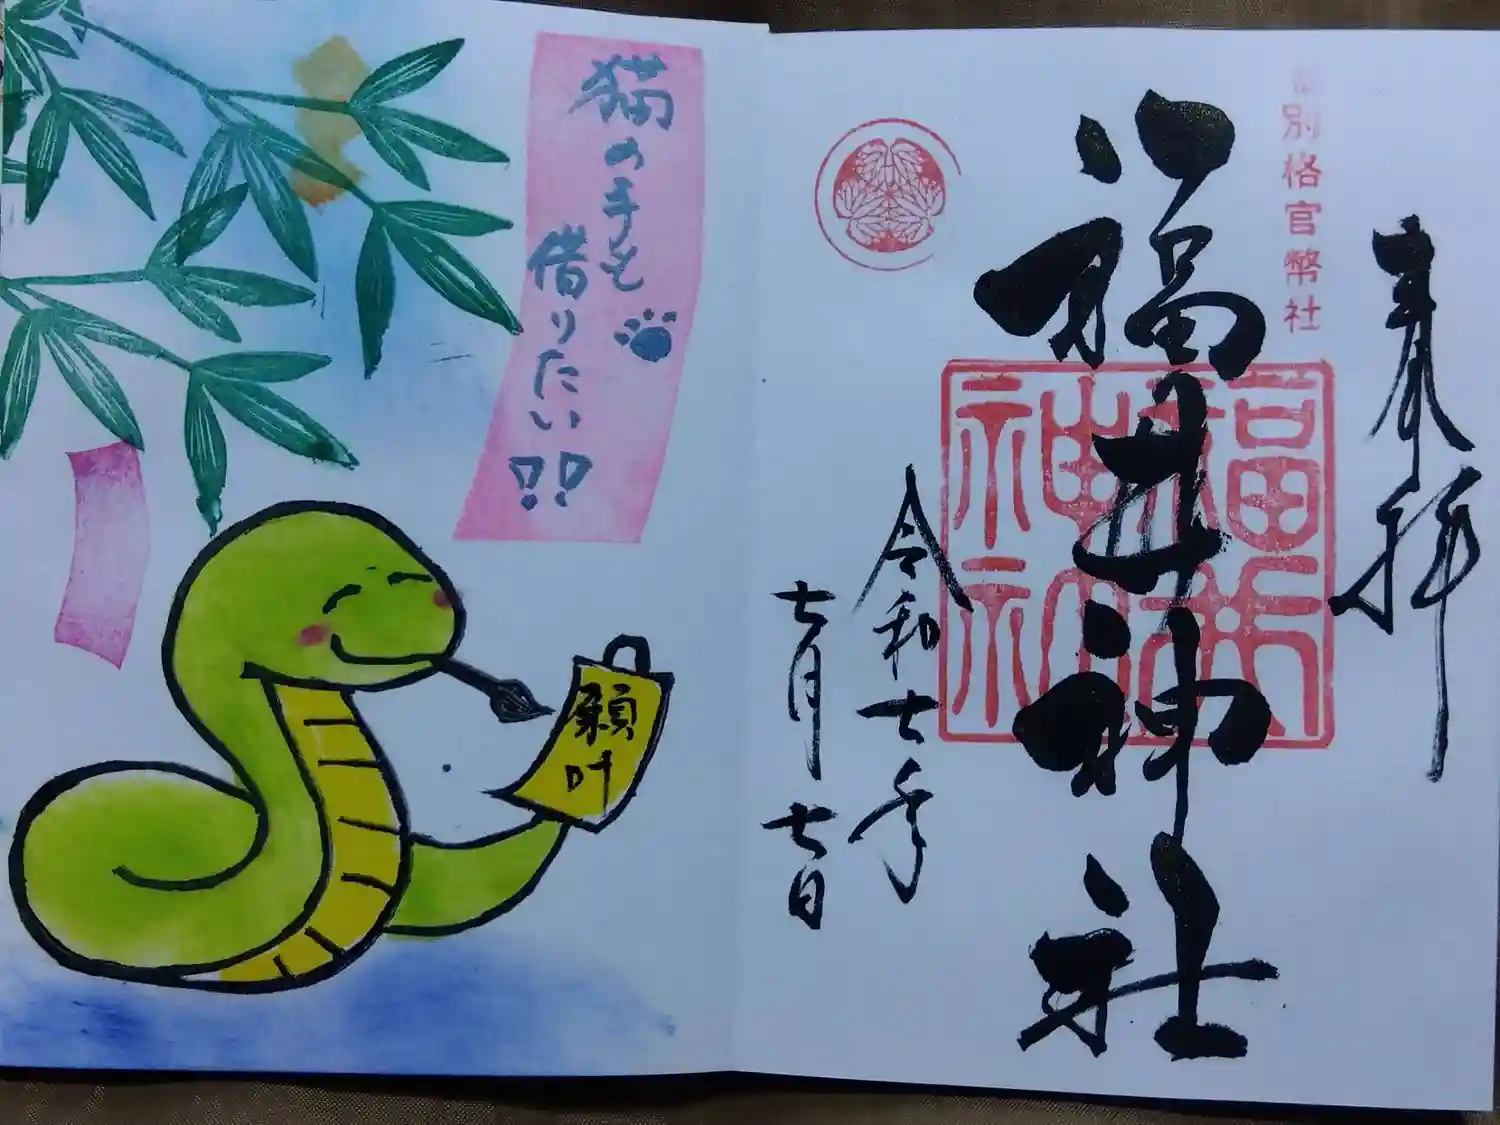 奉拝
別格官幣社
福井神社
福井
神社
令和七年
七月七日
猫の手も
借りたい!!
願
叶